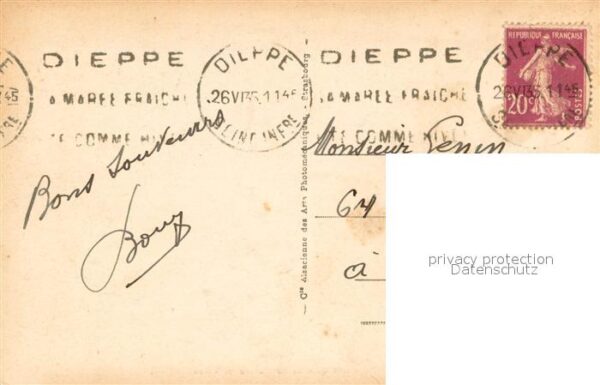 DIEPPE
LA MARÉE FRAICHE
ÉTÉ COMME HIVER
DIEPPE
26 VI 35 11 45
SEINE INFRE
DIEPPE
LA MARÉE FRAICHE
ÉTÉ COMME HIVER
DIEPPE
26 VI 35 11 45
REPUBLIQUE FRANÇAISE
20c
POSTES
Bons Souvenirs
Cie Alsacienne des Arts Photomécaniques, Strasbourg
Monsieur Genin
64
à
privacy protection
Datenschutz